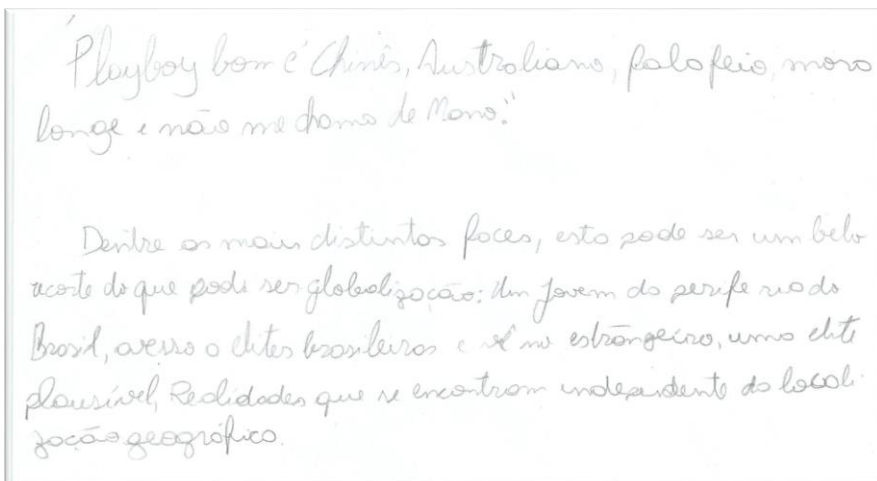 "Playboy bom é Chinês, Australiano, fala feio, mora
longe e não me chama de Mano."
Dentre as mais distintas faces, esta pode ser um belo
recorte do que pode ser globalização: Um jovem da periferia do
Brasil, avesso a elites brasileiras e vê no estrangeiro, uma elite
plausível, Realidades que se encontram independente da locali
zação geográfica.